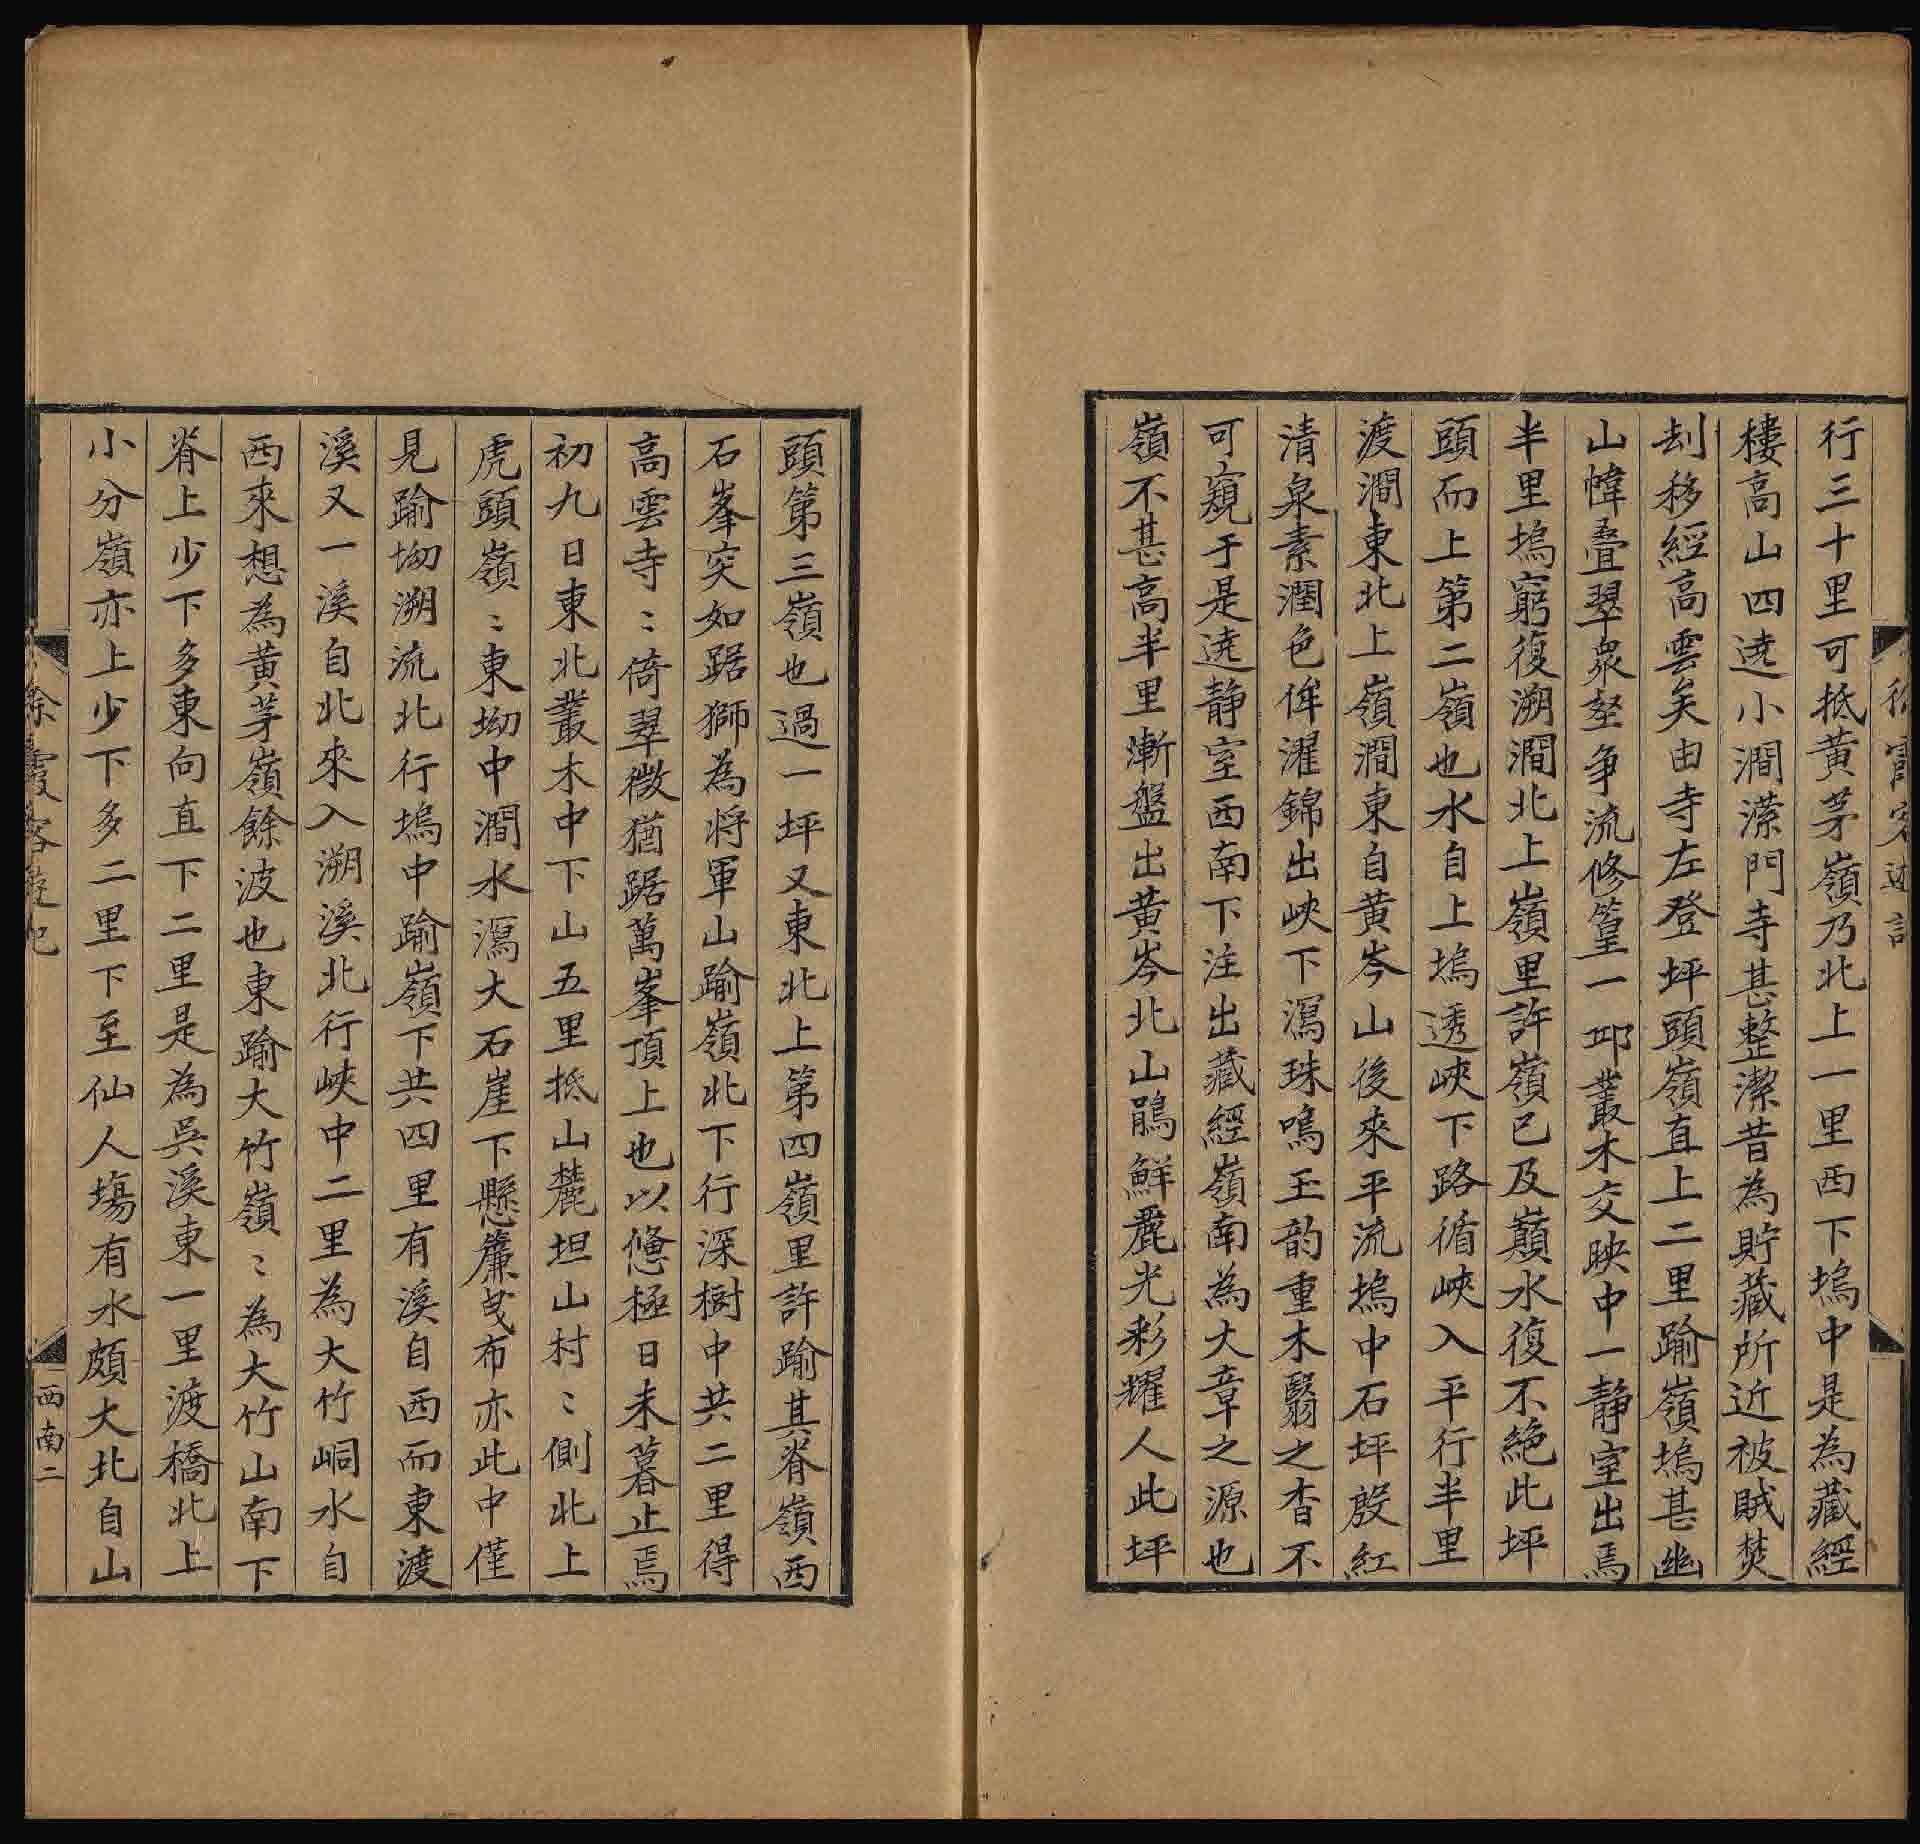 行三十里可抵黄茅嶺乃北上一里西下塢中是為藏經
樓高山四遶小澗潆門寺甚整潔昔為貯藏所近被賊焚
刦移經高雲矣由寺左登坪頭嶺直上二里踰嶺塢甚幽
山幃疊翠衆壑争流修篁一邱叢木交映中一静室出焉
半里塢窮復溯澗北上嶺里許嶺已及巔水復不絶此坪
頭而上第二嶺也水自上塢透峽下路循峽入平行半里
渡澗東北上嶺澗東自黄岑山後來平流塢中石坪殷紅
清泉素潤色侔濯錦出峽下瀉珠鳴玉韵重木翳之杳不
可窺于是遶静室西南下注出藏經嶺南為大章之源也
嶺不甚高半里漸盤出黄岑北山鵑鮮麗光彩耀人此坪
徐霞客遊記
頭第三嶺也過一坪又東北上第四嶺里許踰其脊嶺西
石峯突如踞獅為将軍山踰嶺北下行深樹中共二里得
高雲寺〻倚翠微猶踞萬峯頂上也以憊極日未暮止焉
初九日東北叢木中下山五里抵山麓坦山村〻側北上
虎頭嶺〻東坳中澗水瀉大石崖下懸簾曳布亦此中僅
見踰坳溯流北行塢中踰嶺下共四里有溪自西而東渡
溪又一溪自北來入溯溪北行峽中二里為大竹峒水自
西來想為黄茅嶺餘波也東踰大竹嶺〻為大竹山南下
脊上少下多東向直下二里是為吳溪東一里渡橋北上
小分嶺亦上少下多二里下至仙人場有水頗大北自山
徐霞客遊記
西南二